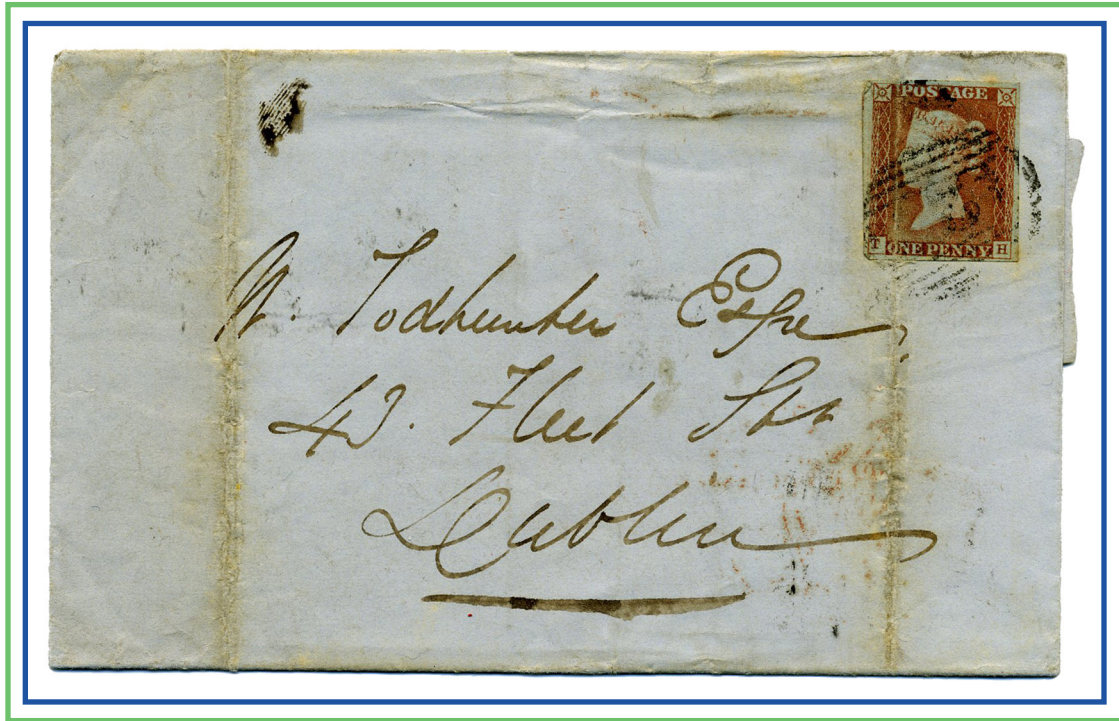 POSTAGE
T ONE PENNY H
W. Todhunter Esqre
43. Fleet Str
Dublin